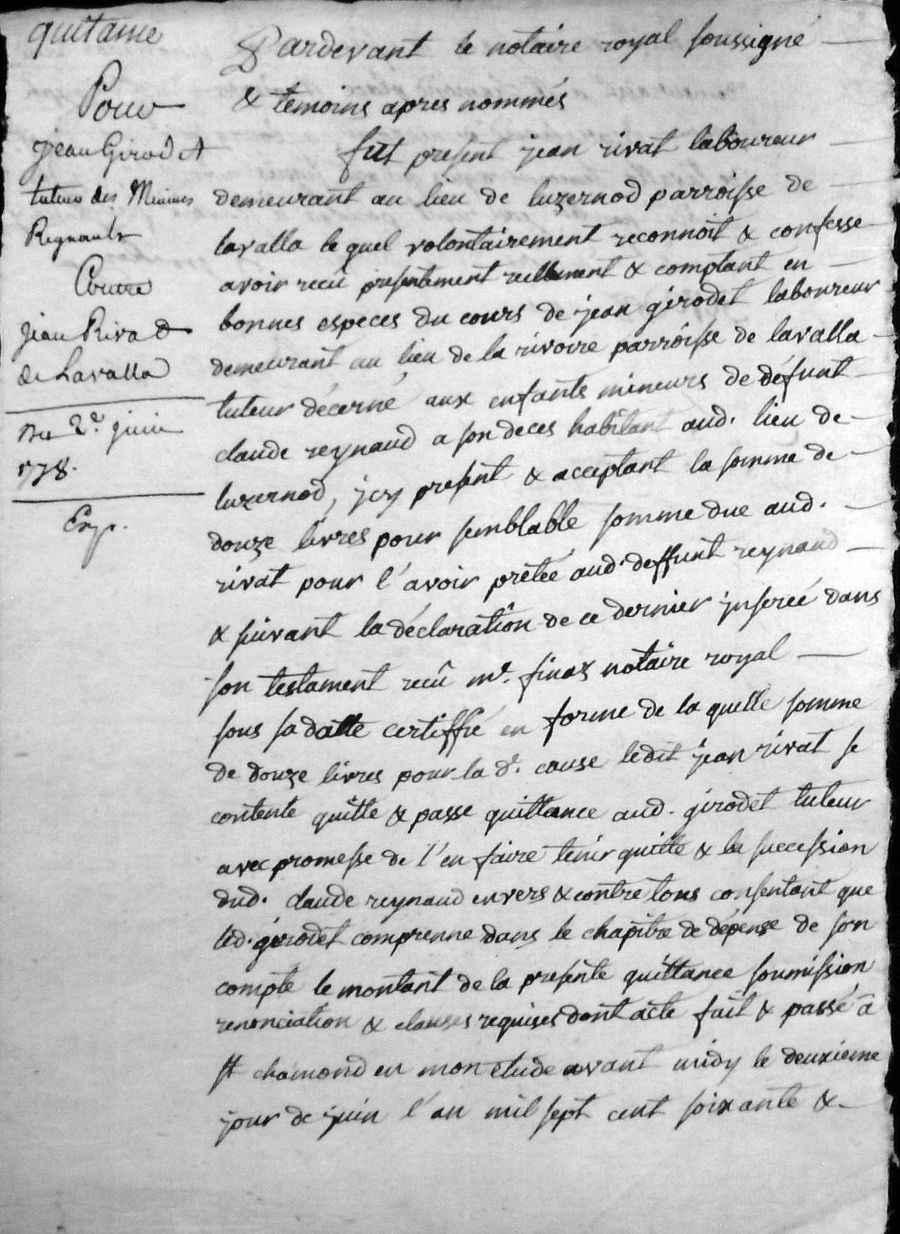 quitance
Pour
Jean Girodet
tuteur des Mineurs
Reynault
Contre
Jean Rivat
de Lavalla
Du 2e. juin
178.
Exp.
Pardevant le notaire royal soussigné
& temoins apres nommés
fut present jean rivat laboureur
demeurant au lieu de luzernod parroisse de
lavalla le quel volontairement reconnoit & confesse
avoir recû presentement reellement & comptant en
bonnes especes du cours de jean girodet laboureur
demeurant au lieu de la rivoire parroisse de lavalla
tuteur décerné aux enfants mineurs de défunt
claude reynaud a son deces habitant aud. lieu de
luzernod, jcy present & acceptant la somme de
douze livres pour semblable somme due aud.
rivat pour l'avoir prêtée aud. deffunt reynaud
& suivant la déclaration de ce dernier jnserée dans
son testament recû me. finaz notaire royal
sous sa datte certiffié en forme de la quelle somme
de douze livres pour la de. cause ledit jean rivat se
contente quitte & passe quittance aud. girodet tuteur
avec promesse de l'en faire tenir quitte & la succession
dud. claude reynaud envers & contre tous consentant que
led. girodet comprenne dans le chapitre de dépense de son
compte le montant de la presente quittance soumission
renonciation & clauses requises dont acte fait & passé à
st chamond en mon etude avant midy le deuxieme
jour de juin l'an mil sept cent soixante &